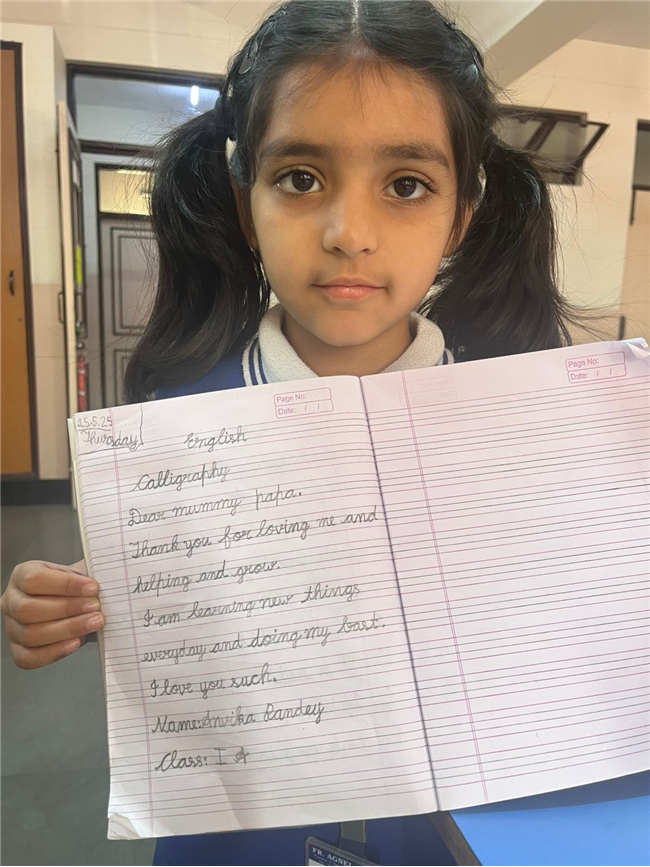 15.5.25
Thursday
English
Calligraphy
Dear mummy papa.
Thank you for loving me and
helping and grow.
I am learning new things
everyday and doing my bast.
I love you such.
Name: Anvika Pandey
Class: I A
Page No:
Date: / /
Page No:
Date: / /
FR. AGNEL